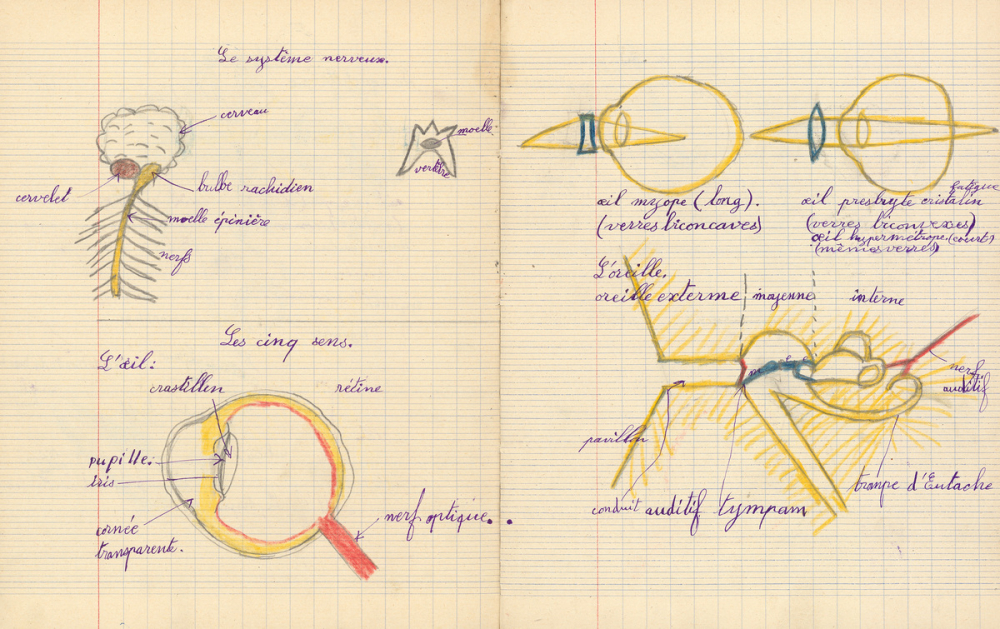 Le système nerveux.
cerveau
moelle
vertèbre
cervelet
bulbe rachidien
moelle épinière
nerfs
Les cinq sens.
L'œil:
crastillen
rétine
pupille:
iris
cornée
transparente.
nerf optique.
œil myope (long).
(verres biconcaves)
œil presbyte cristalin
fatigue
(verres biconvexes)
œil hypermétrope (court)
(mêmes verres)
L'oreille.
oreille externe moyenne interne
nerf
auditif
pavillon
conduit auditif tympam
trompe d'Eutache